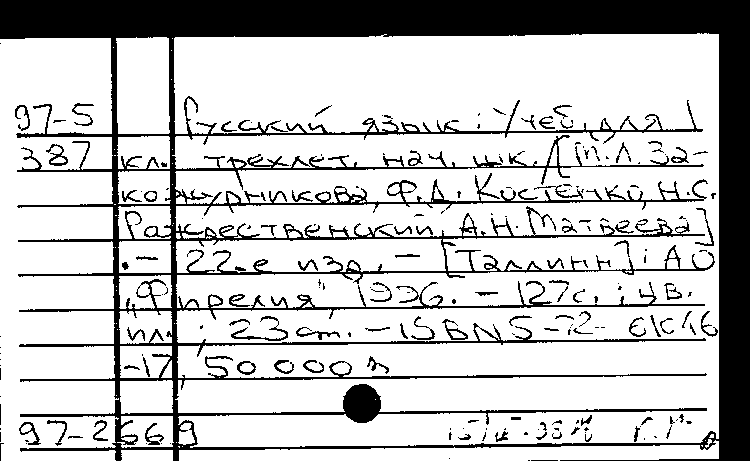 97-5 Русский язык : Учеб. для 1
387 кл. трехлет. нач. шк. / [М.Л. За-
кожурникова, Ф.Д. Костенко, Н.С.
Рождественский, А.Н. Матвеева]
. – 22-е изд. – [Таллинн] : АО
„Фирелия", 1996. – 127с. : цв.
ил. ; 23 см. – ISBN 5-72-
-17, 50 000
97-2669